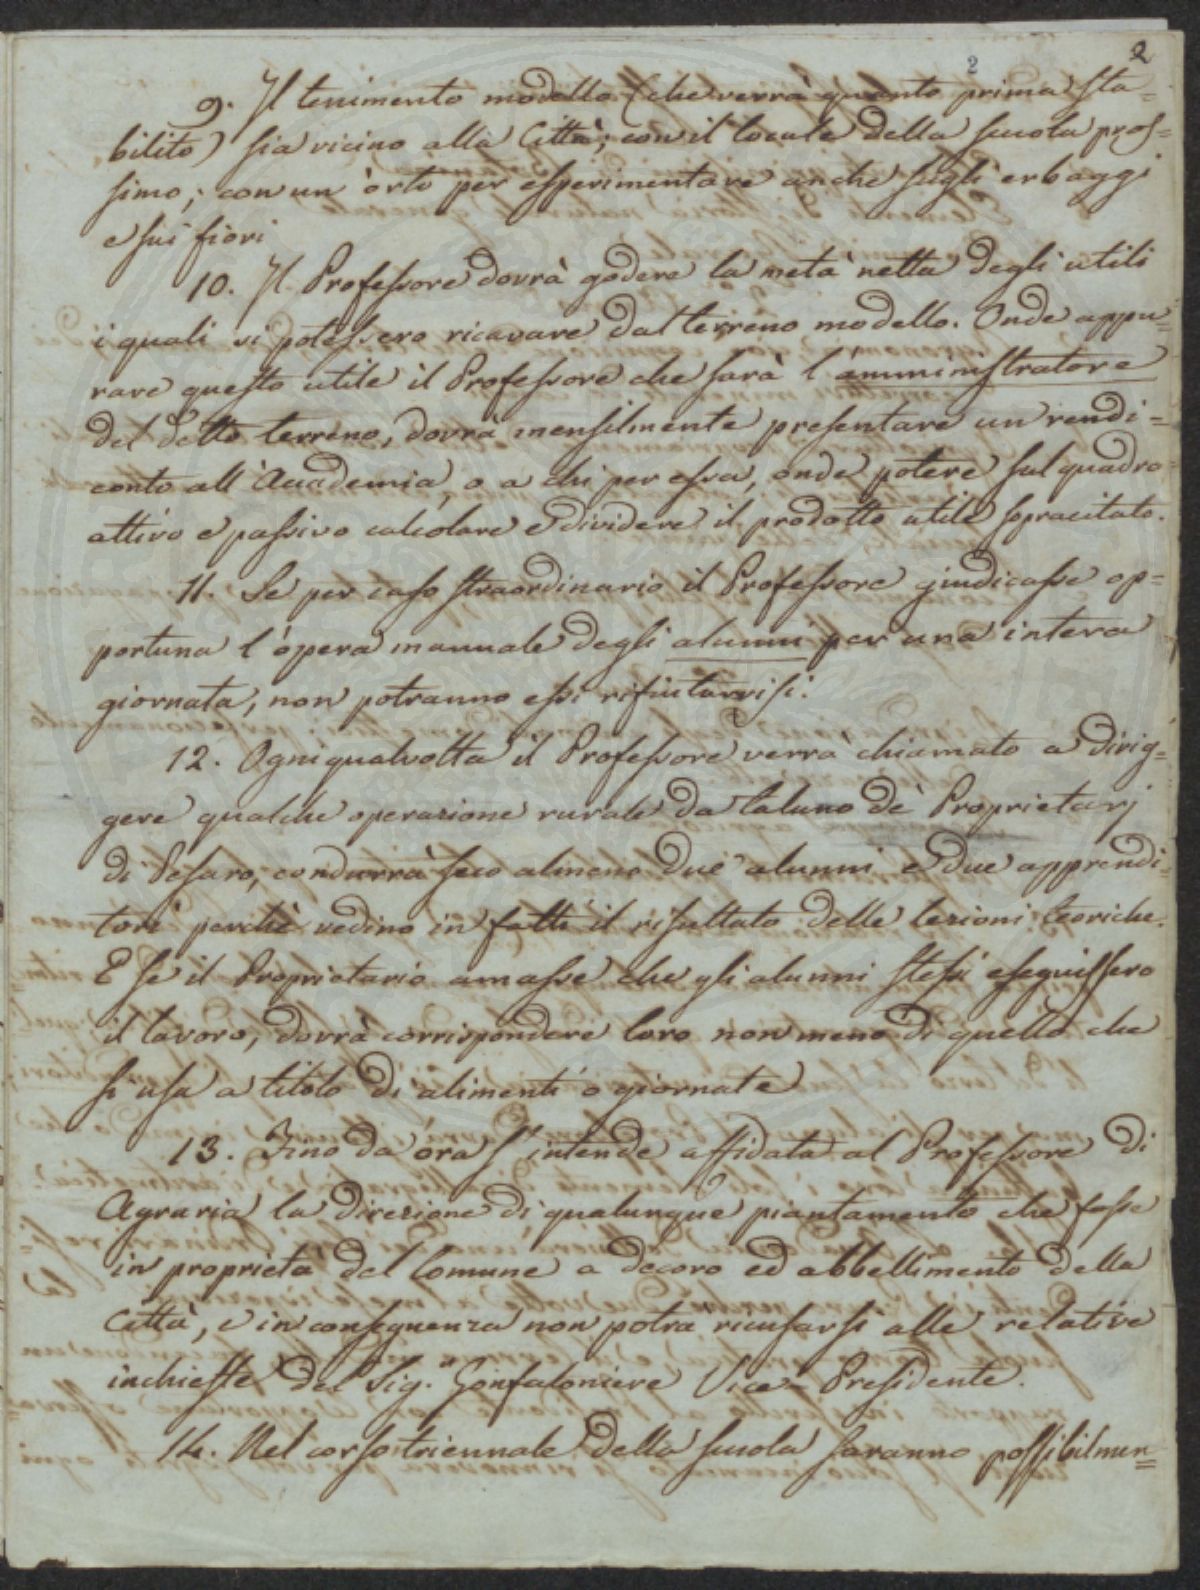 2
2
9. Il tenimento modello (che verrà quanto prima sta=
bilito) sia vicino alla Città; con il locale della scuola pros=
simo; con un'orto per esperimentare anche sugli erbaggi
e sui fiori
10. Il Professore dovrà godere la metà netta degli utili
i quali si potessero ricavare dal terreno modello. Onde appu=
rare questo utile il Professore che sarà l'amministratore
del detto terreno, dovrà mensilmente presentare un rendi=
conto all'Accademia, o a chi per essa, onde potere sul quadro
attivo e passivo calcolare e dividere il prodotto utile sopracitato.
11. Se per caso straordinario il Professore giudicasse op=
portuna l'opera manuale degli alunni per una intera
giornata, non potranno essi rifiutarvisi.
12. Ogniqualvolta il Professore verrà chiamato a dirig=
gere qualche operazione rurale da taluno de' Proprietarj
di Pesaro, condurrà seco almeno due alunni e due apprendi=
tori perchè vedino in fatti il risultato delle lezioni teoriche.
E se il Proprietario amasse che gli alunni stessi eseguissero
il lavoro, dovrà corrispondere loro non meno di quello che
si usa a titolo di alimenti o giornate
13. Fino da ora s'intende affidata al Professore di
Agraria la direzione di qualunque piantamento che fosse
in proprietà del Comune a decoro ed abbellimento della
Città, e in conseguenza non potrà ricusarsi alle relative
inchieste del Sig. Gonfaloniere Vice-Presidente.
14. Nel corso triennale della scuola saranno possibilmen=